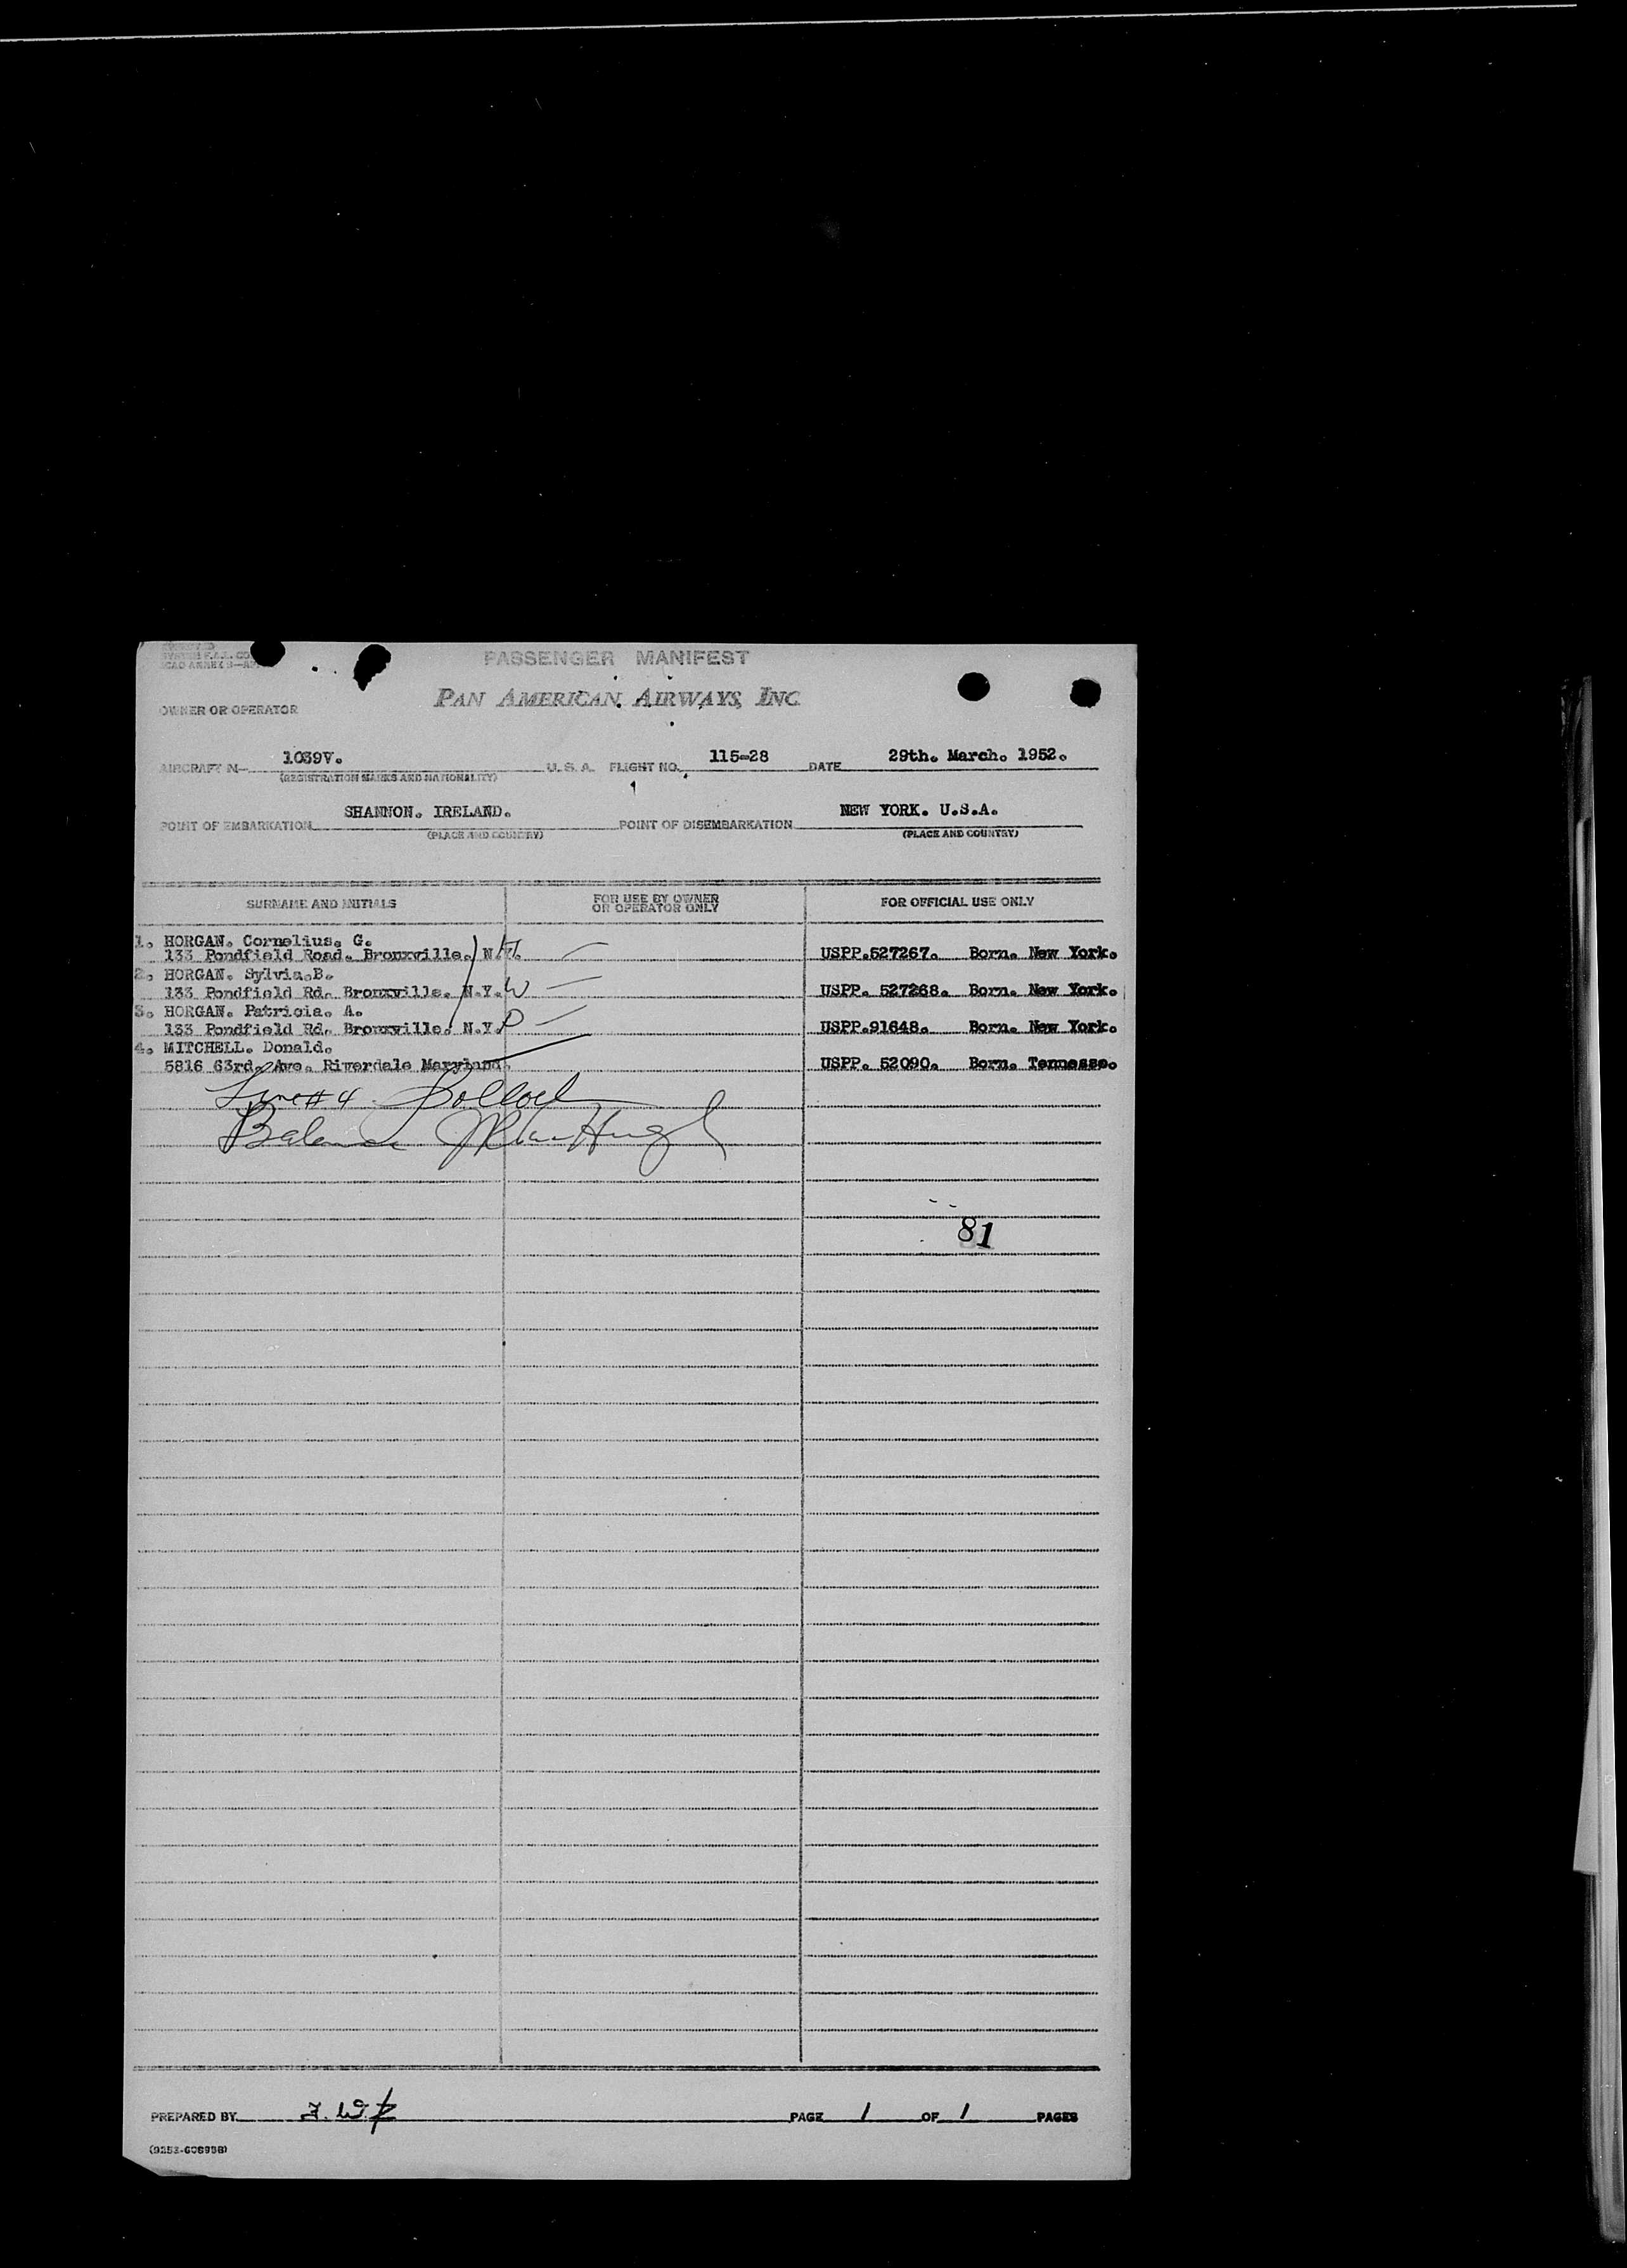 PASSENGER MANIFEST
PAN AMERICAN AIRWAYS, INC.
OWNER OR OPERATOR
AIRCRAFT N— 1039V. U. S. A. FLIGHT NO. 115-28 DATE 29th. March. 1952.
(REGISTRATION MARKS AND NATIONALITY)
POINT OF EMBARKATION SHANNON. IRELAND. POINT OF DISEMBARKATION NEW YORK. U.S.A.
(PLACE AND COUNTRY) (PLACE AND COUNTRY)
SURNAME AND INITIALS FOR USE BY OWNER OR OPERATOR ONLY FOR OFFICIAL USE ONLY
1. HORGAN. Cornelius. G.
133 Pondfield Road. Bronxville. N.Y. USPP.527267. Born. New York.
2. HORGAN. Sylvia.B.
133 Pondfield Rd. Bronxville. N.Y. W USPP. 527268. Born. New York.
3. HORGAN. Patricia. A.
133 Pondfield Rd. Bronxville. N.Y. D USPP.91648. Born. New York.
4. MITCHELL. Donald.
5816 63rd. Ave. Riverdale Maryland. USPP. 52090. Born. Tennesse.
Line #4
Balance
81
PREPARED BY PAGE 1 OF 1 PAGES